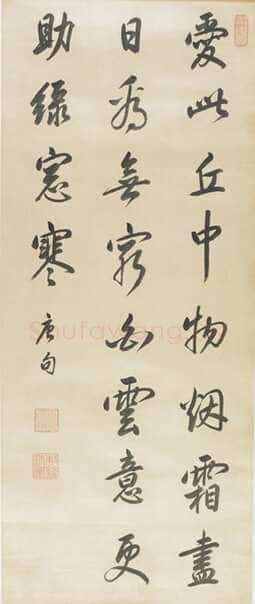 愛此丘中物烟霜盡
日看無窮白雲意更
助綠窓寒
唐句
Shufawang